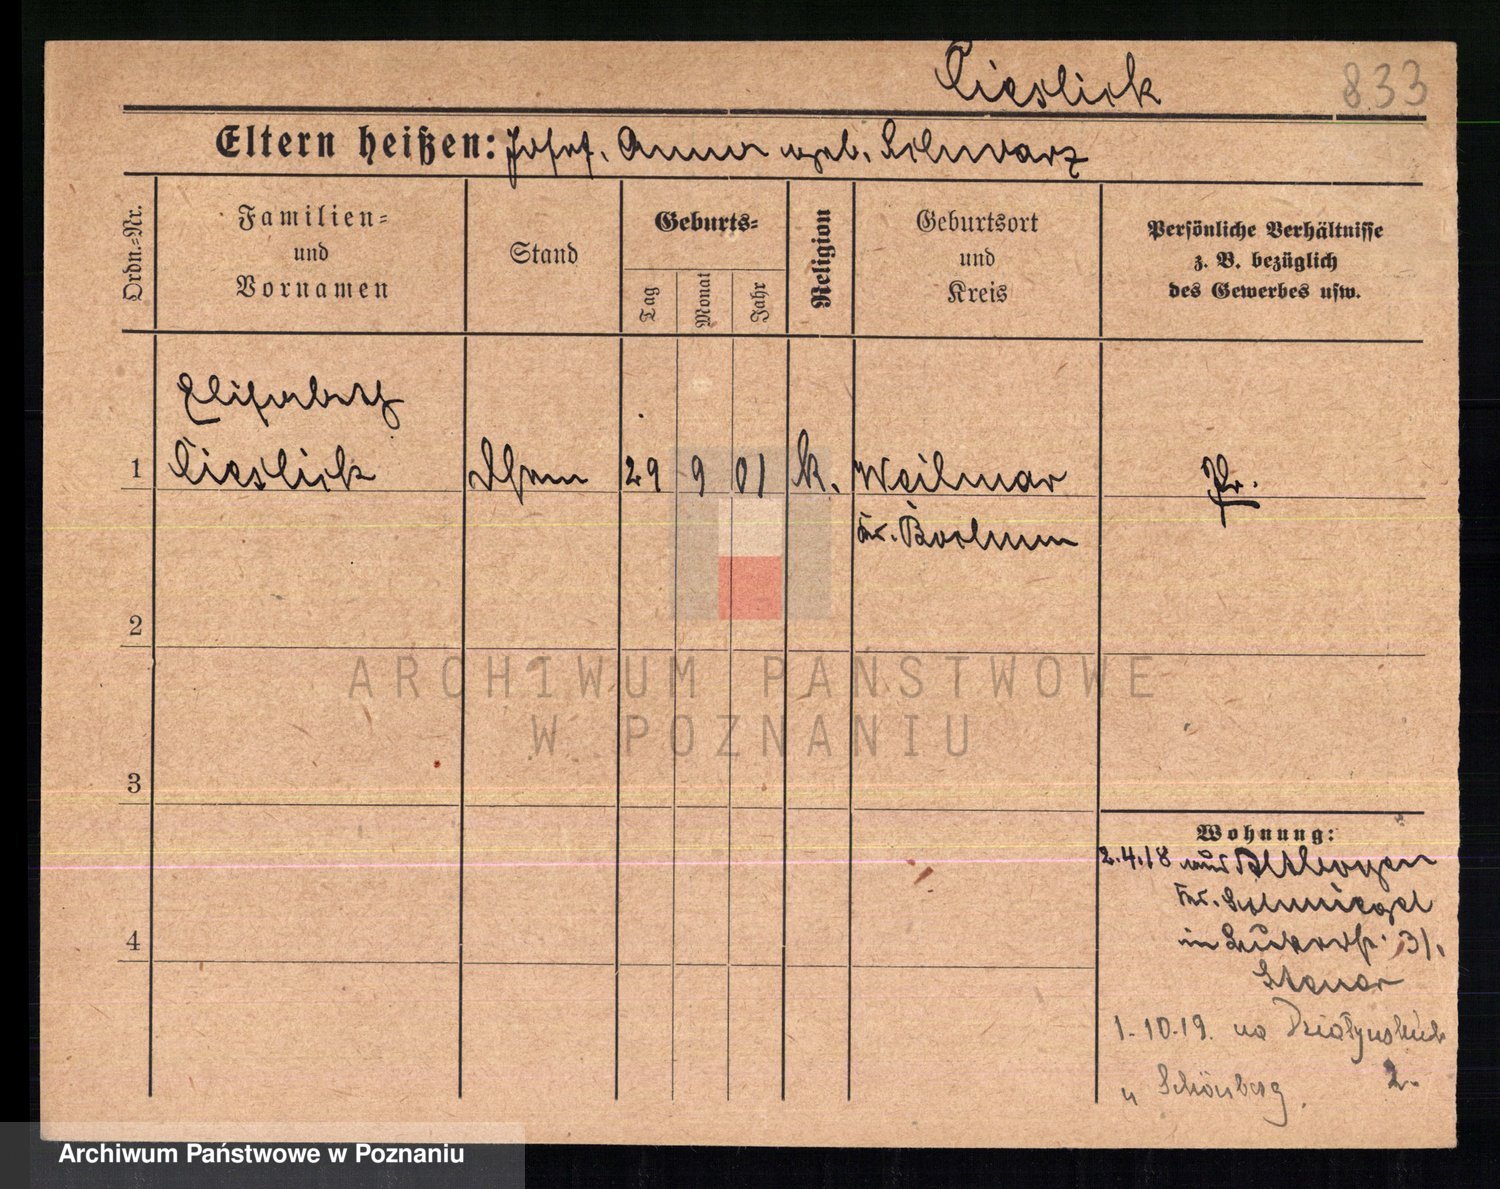 Cieslick 833
Eltern heißen: Josef, Anna geb. Schwarz
Ordn.=Nr.
Familien=
und
Vornamen
Stand
Geburts=
Tag
Monat
Jahr
Religion
Geburtsort
und
Kreis
Persönliche Verhältnisse
z. B. bezüglich
des Gewerbes usw.
Elisabeth
1 Cieslick 29 9 01 k. Weilmar Pr.
Kr. Bochum
2
3
4
Wohnung:
2.4.18 aus Altbogen
Kr. Schmiegel
in 31,
1.10.19. na Działyńskich
2.
u Schönberg.
ARCHIWUM PAŃSTWOWE
W POZNANIU
Archiwum Państwowe w Poznaniu